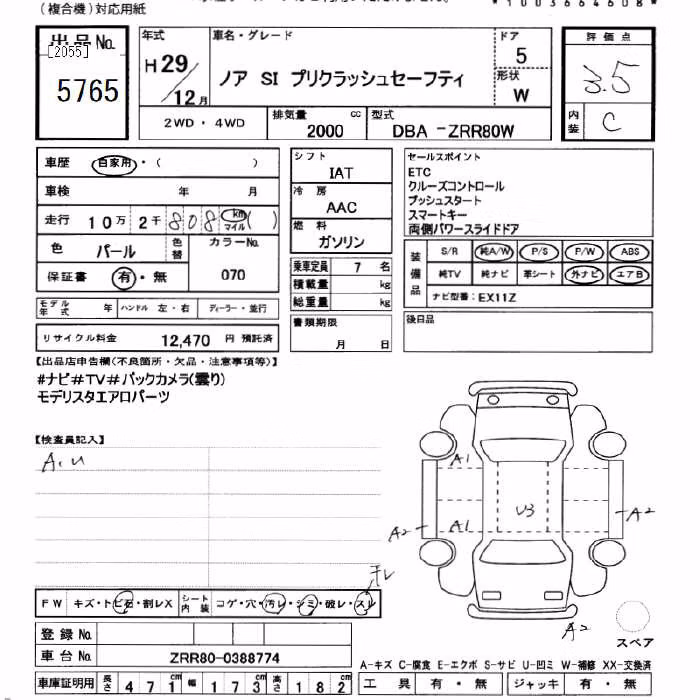 (複合機)対応用紙
*1003664608*
出品No.
[2055]
5765
年式
H29
12月
車名・グレード
ノア SI プリクラッシュセーフティ
ドア
5
形状
W
評価点
3.5
内装
C
2WD・4WD
排気量
2000
cc
型式
DBA -ZRR80W
車歴 自家用・( )
車検 年 月
走行 10万 2千 808 km マイル ( )
色 パール 色替
カラーNo.
070
保証書 有・無
モデル年式 年 ハンドル 左・右 ディーラー・並行
リサイクル料金 12,470 円 預託済
シフト
IAT
冷房
AAC
燃料
ガソリン
乗車定員 7 名
積載量 kg
総重量 kg
書類期限
月 日
セールスポイント
ETC
クルーズコントロール
プッシュスタート
スマートキー
両側パワースライドドア
装備品
S/R 純A/W P/S P/W ABS
純TV 純ナビ 革シート 外ナビ エアB
ナビ型番: EX11Z
後日品
【出品店申告欄(不良箇所・欠品・注意事項等)】
#ナビ#TV#バックカメラ(曇り)
モデリスタエアロパーツ
【検査員記入】
A.U
A1
U3
A2
A1
A2
A2
スペア
FW キズ・トビ石・割レX シート内装 コゲ・穴・汚レ・シミ・破レ・スレ
登録No.
車台No. ZRR80-0388774
車庫証明用 長さ 471cm 幅 173cm 高さ 182cm
A-キズ C-腐食 E-エクボ S-サビ U-凹ミ W-補修 XX-交換済
工具 有・無 ジャッキ 有・無